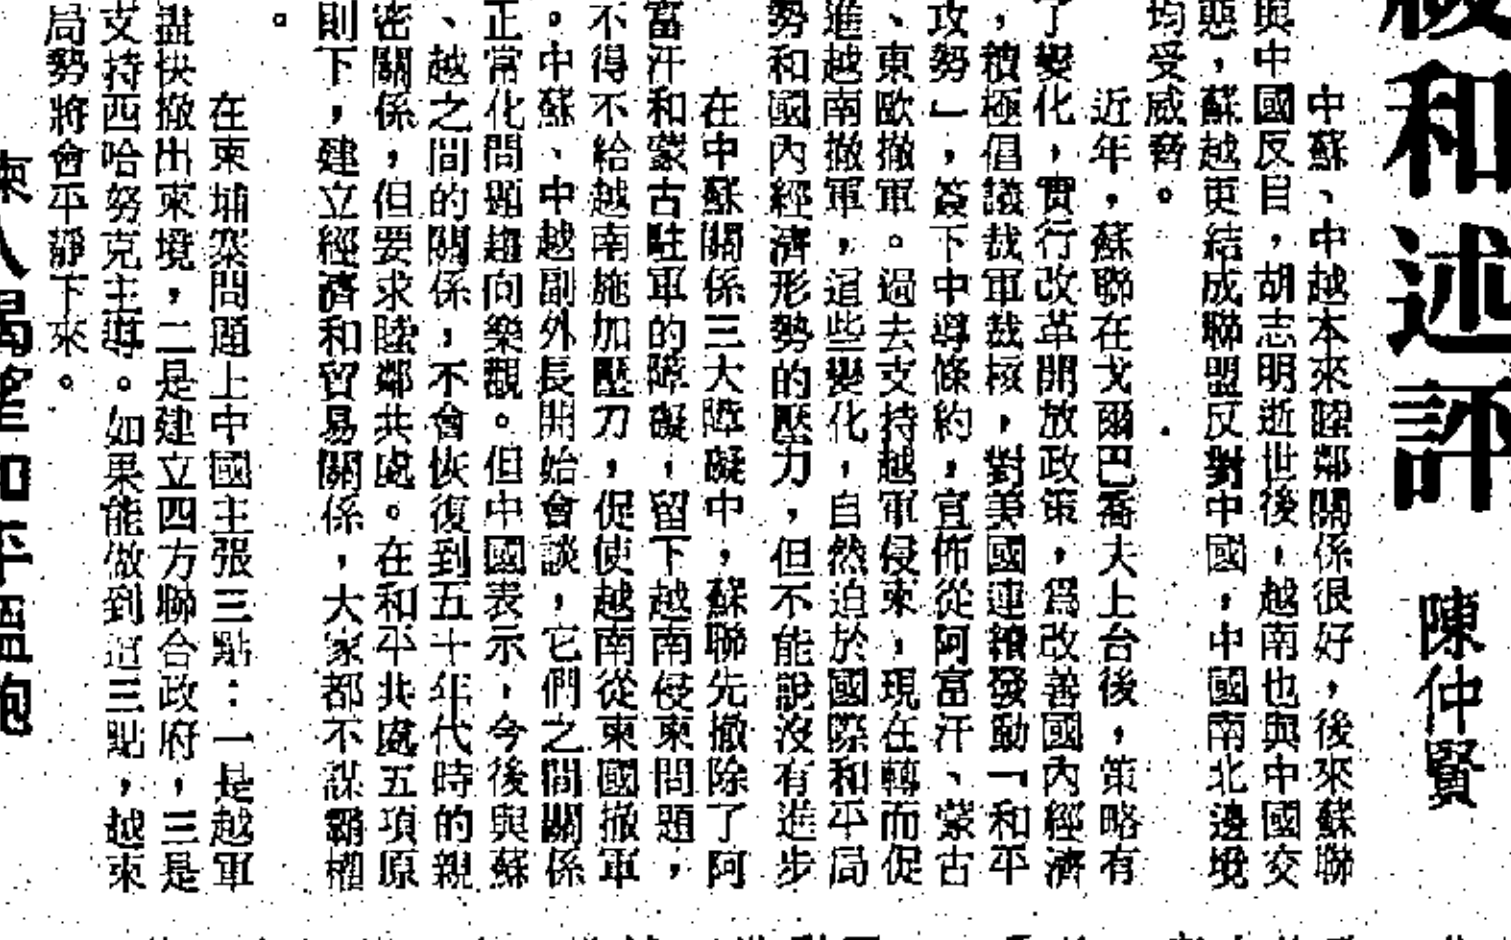 和述評
陳仲賢
中蘇、中越本來睦鄰關係很好，後來蘇聯
與中國反目，胡志明逝世後，越南也與中國交
惡，蘇越更結成聯盟反對中國，中國南北邊境
均受威脅。
近年，蘇聯在戈爾巴喬夫上台後，策略有
了變化，實行改革開放政策，為改善國內經濟
，積極倡議裁軍裁核，對美國連續發動「和平
攻勢」，簽下中導條約，宣佈從阿富汗、蒙古
、東歐撤軍。過去支持越軍侵柬，現在轉而促
進越南撤軍，這些變化，自然迫於國際和平局
勢和國內經濟形勢的壓力，但不能說沒有進步
在中蘇關係三大障礙中，蘇聯先撤除了阿
富汗和蒙古駐軍的障礙，留下越南侵柬問題，
不得不給越南施加壓力，促使越南從柬國撤軍
。中蘇、中越副外長開始會談，它們之間關係
正常化問題趨向樂觀。但中國表示，今後與蘇
、越之間的關係，不會恢復到五十年代時的親
密關係，但要求睦鄰共處。在和平共處五項原
則下，建立經濟和貿易關係，大家都不謀霸權
。
在柬埔寨問題上中國主張三點：一是越軍
盡快撤出柬境，二是建立四方聯合政府，三是
支持西哈努克主導。如果能做到這三點，越柬
局勢將會平靜下來。